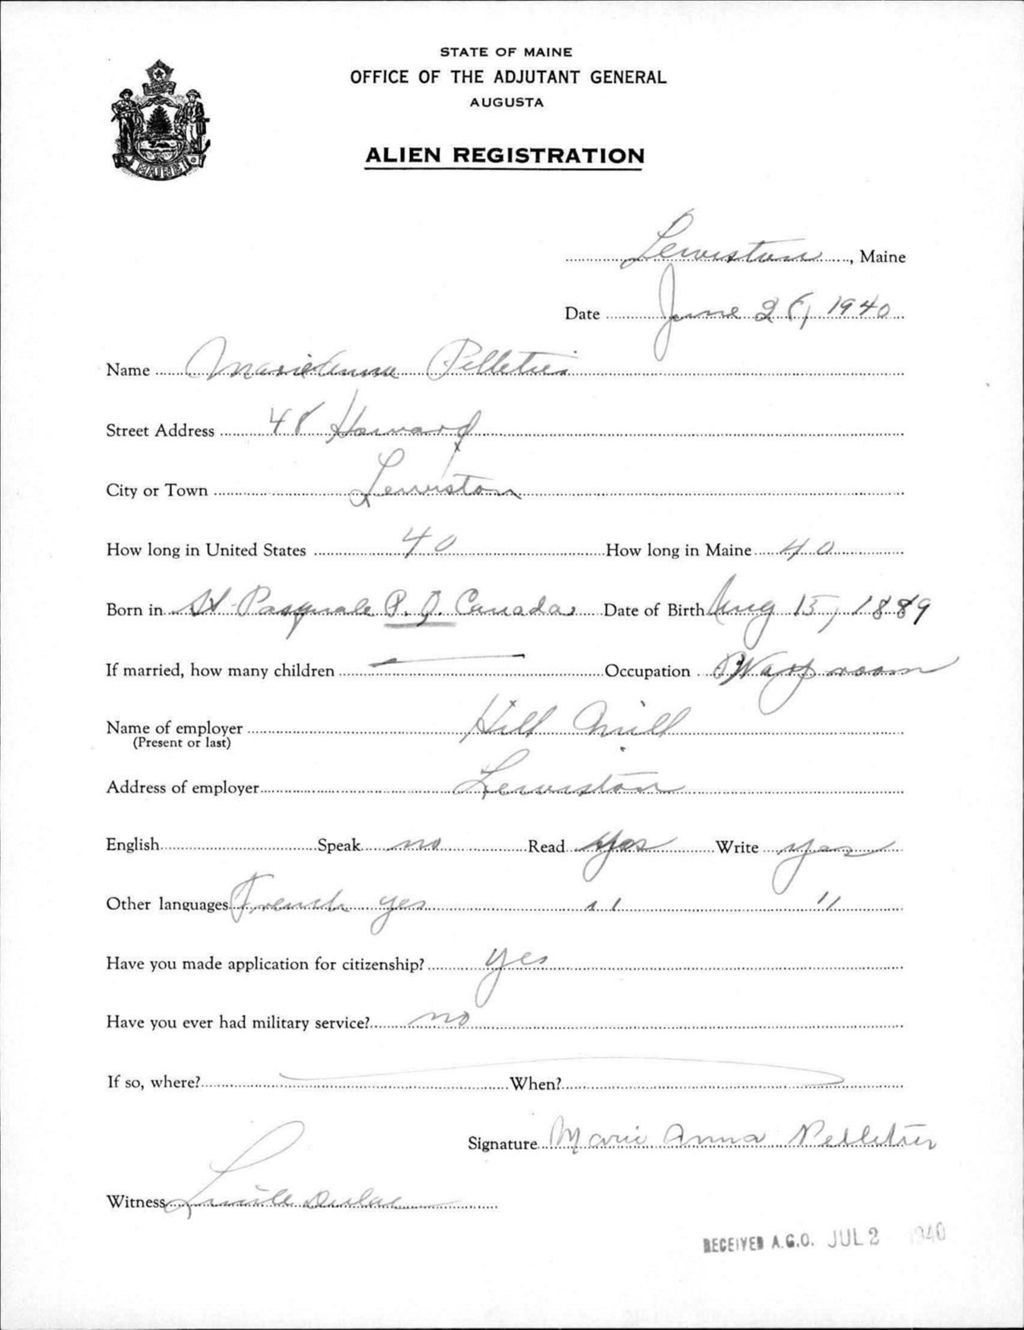 STATE OF MAINE
OFFICE OF THE ADJUTANT GENERAL
AUGUSTA
ALIEN REGISTRATION
Lewiston, Maine
Date June 26, 1940
Name Marie Anna Pelletier
Street Address 48 Howard
City or Town Lewiston
How long in United States 40 How long in Maine 40
Born in St Pasquale P. Q. Canada Date of Birth Aug 15, 1889
If married, how many children Occupation room
Name of employer Hill Mill
(Present or last)
Address of employer Lewiston
English Speak no Read yes Write yes
Other languages French yes " "
Have you made application for citizenship? yes
Have you ever had military service? no
If so, where? When?
Signature Marie Anna Pelletier
Witness Lucille Dulac
RECEIVED A.G.O. JUL 2 1940